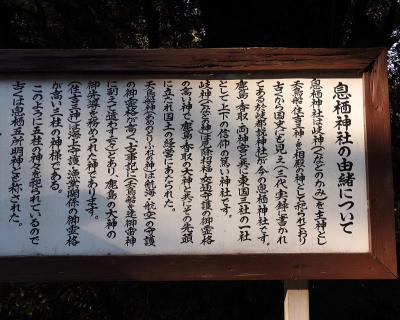 息栖神社の由緒について
息栖神社は岐神(ふなどのかみ)を主神とし
天鳥船住吉三神を相殿の神として祀られており
古くから国史にも見え(三代実録に書かれ
てある於岐都説神社が今の息栖神社です。
鹿島・香取・両神宮と共に東国三社の一社
として上下の信仰の篤い神社です。
岐神(ふなどの神)は厄除招福交通守護の御霊格
の高い神で鹿島・香取の大神と共にその先頭
に立たれ国土の経営にあたられた。
天鳥船神(あめのとりふね)は航海・航空の守護
の御霊格が高く(古事記に(天鳥船を建御雷神
に副えて遣わす)とあり、鹿島の大神の
御先導を務められた神であります。
(住吉三神)は海上守護漁業関係の御霊格
が高い三柱の神様である。
このように五柱の神々を祀られているので
古くは息栖五所明神とも称された。